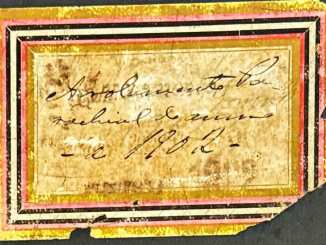 Arrolamento Pa-
rochial do anno
- de 1902 -